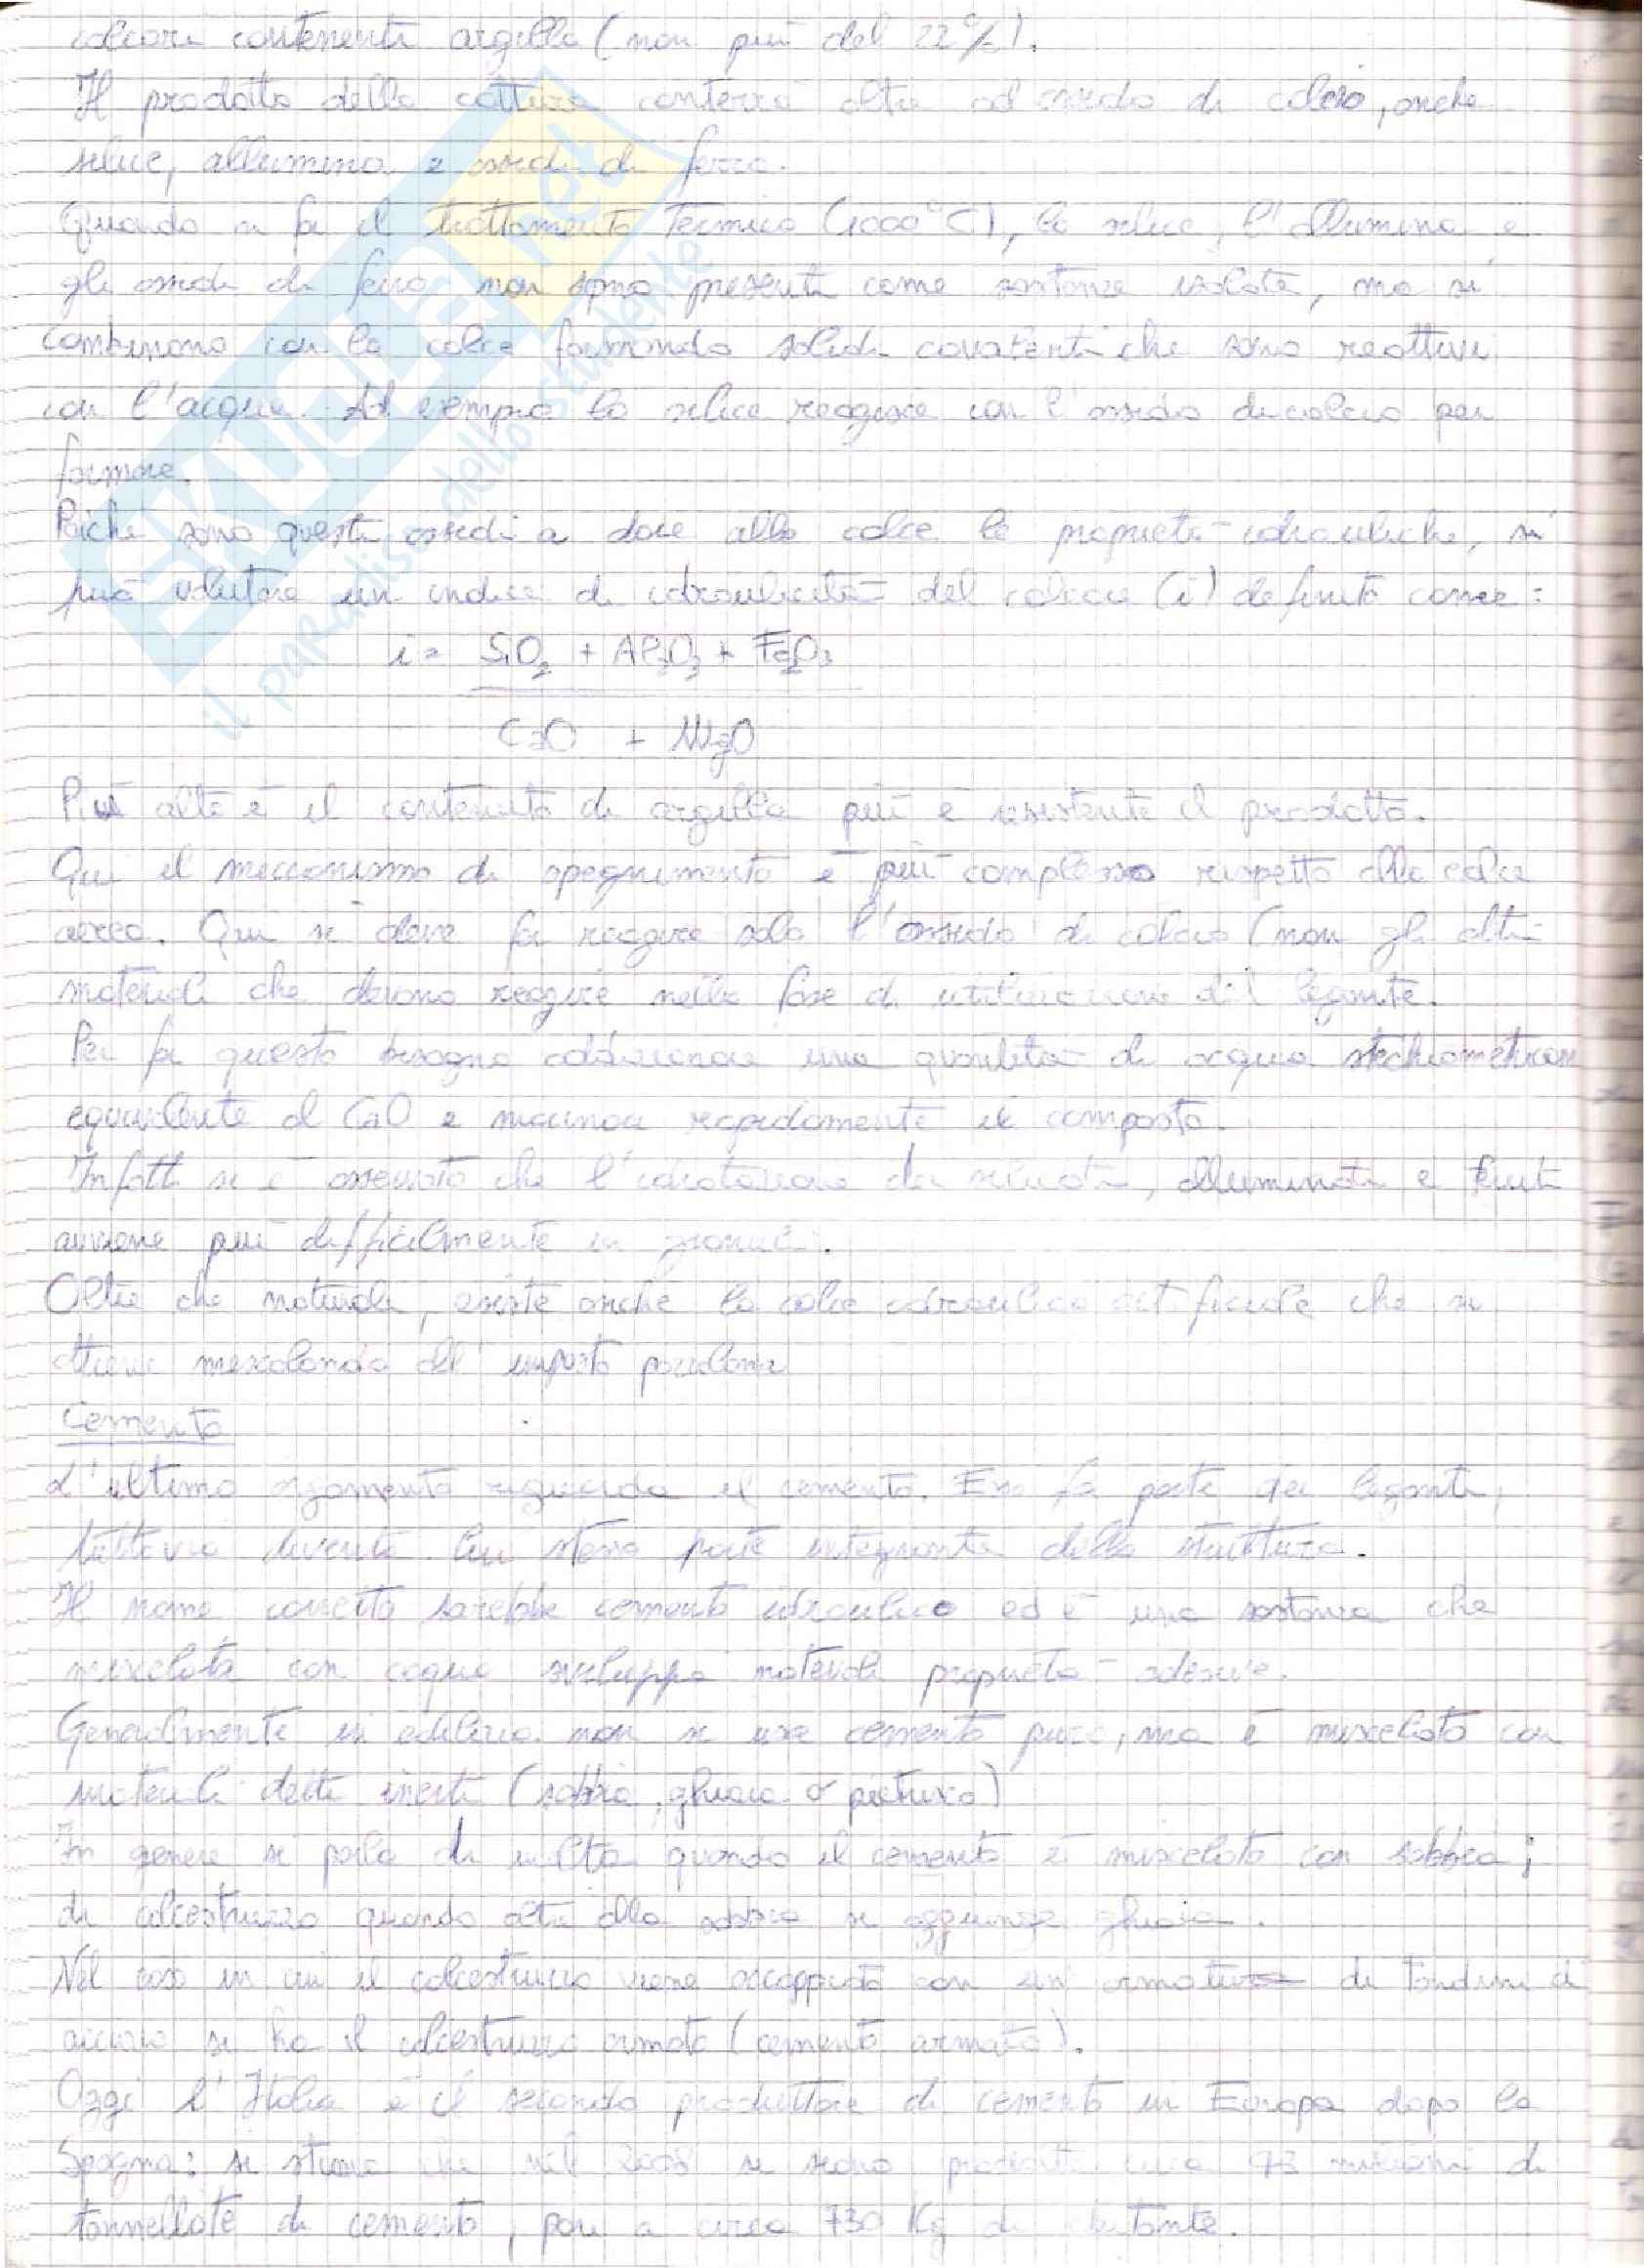 calcari contenenti argilla (non più del 22%).
Il prodotto della cottura conterrà oltre ad ossido di calcio, anche
silice, allumina e ossidi di ferro.
Quando si fa il trattamento termico (1000°C), la silice, l'allumina e
gli ossidi di ferro non sono presenti come sostanze isolate, ma si
combinano con la calce formando solidi covalenti che sono reattivi
con l'acqua. Ad esempio la silice reagisce con l'ossido di calcio per
formare.
Poiché sono questi ossidi a dare alla calce le proprietà idrauliche, si
può valutare un indice di idraulicità del calcare (i) definito come:
i = SiO2 + Al2O3 + Fe2O3
CaO + MgO
Più alto è il contenuto di argilla più è resistente il prodotto.
Qui il meccanismo di spegnimento è più complesso rispetto alla calce
aerea. Qui si deve far reagire solo l'ossido di calcio (non gli altri
materiali che devono reagire nella fase di utilizzazione del legante.
Per far questo bisogna addizionare una quantità di acqua stechiometricam
equivalente al CaO e macinare rapidamente il composto.
Infatti si è osservato che l'idratazione dei silicati, alluminati e ferriti
avviene più difficilmente in granuli.
Oltre che naturale, esiste anche la calce idraulica artificiale che si
ottiene mescolando all'impasto pozzolana
Cemento
L'ultimo argomento riguarda il cemento. Esso fa parte dei leganti,
tuttavia diventa lui stesso parte integrante della struttura.
Il nome corretto sarebbe cemento idraulico ed è una sostanza che
miscelata con acqua sviluppa notevoli proprietà adesive.
Generalmente in edilizia non si usa cemento puro, ma è miscelato con
materiali detti inerti (sabbia, ghiaia o pietrisco)
In genere si parla di malta quando il cemento è miscelato con sabbia;
di calcestruzzo quando oltre alla sabbia si aggiunge ghiaia.
Nel caso in cui il calcestruzzo viene accoppiato con un'armatura di tondini di
acciaio si ha il calcestruzzo armato (cemento armato).
Oggi l'Italia è il secondo produttore di cemento in Europa dopo la
Spagna: si stima che nel 2008 si siano prodotte circa 43 milioni di
tonnellate di cemento, pari a circa 730 Kg di abitante.
SKUOLA.net
il paradiso dello studente